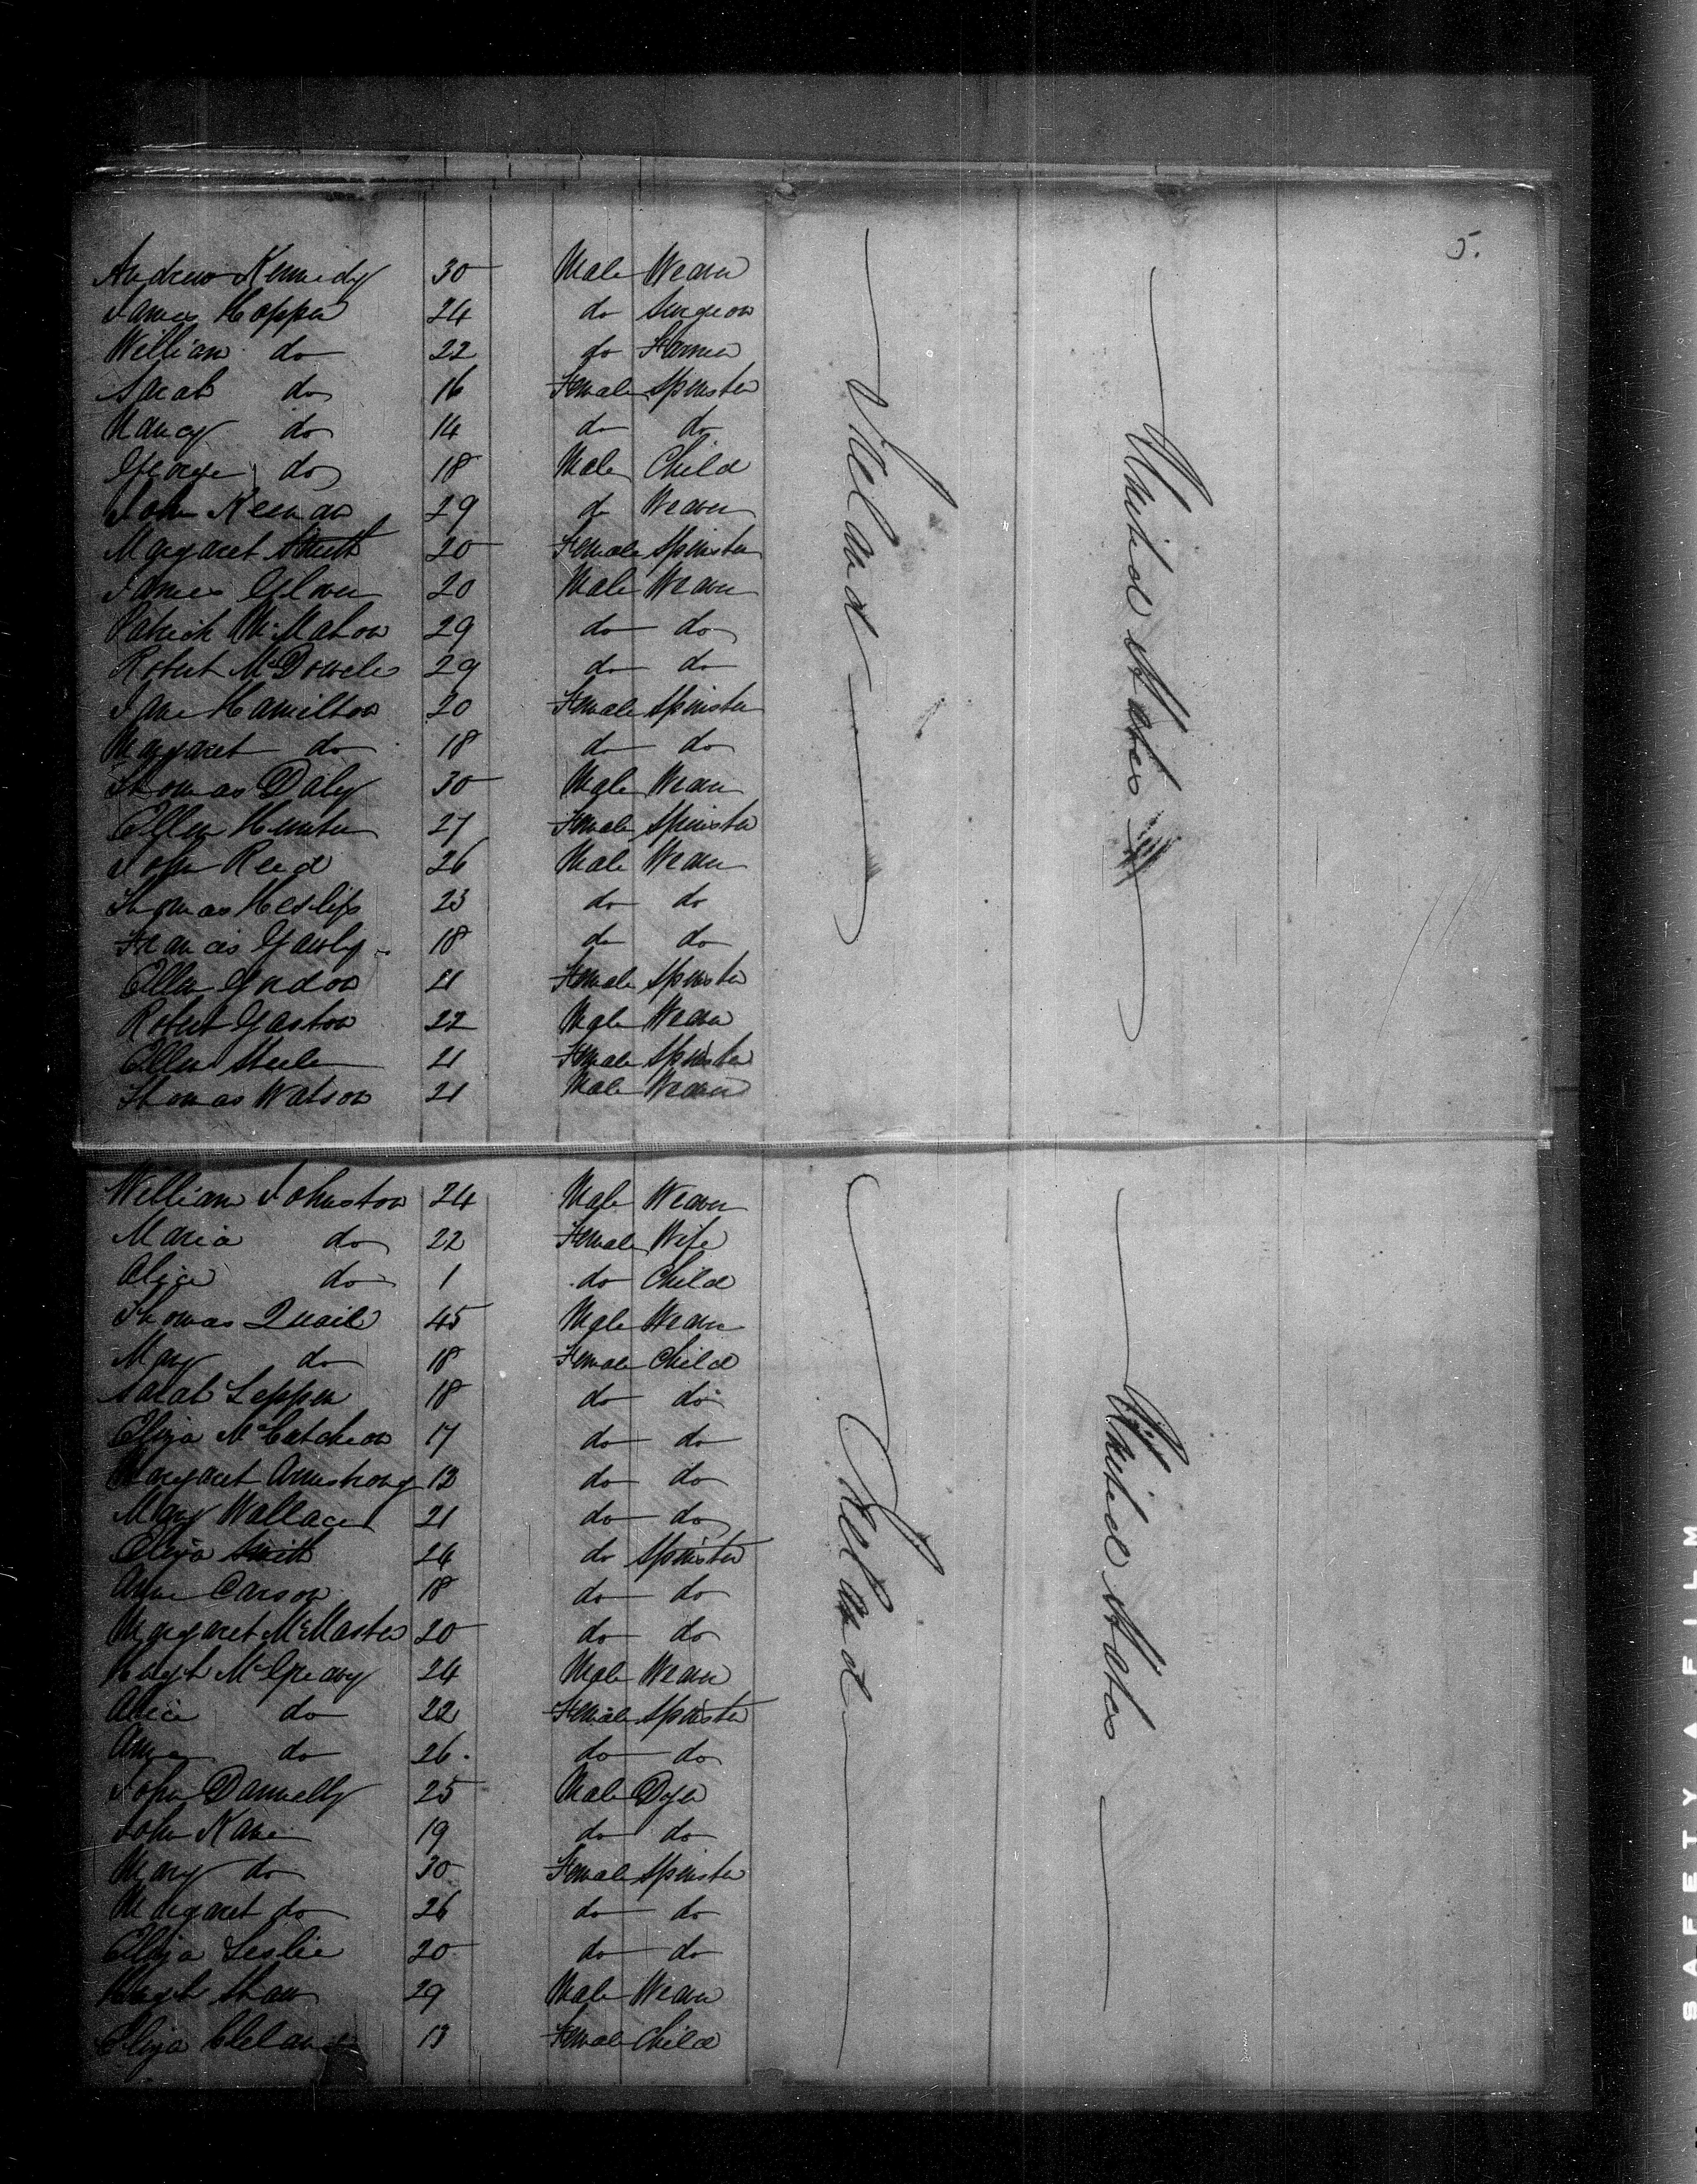 5.
Andrew Kennedy 30 Male Weaver
James Hopper 24 do Surgeon
William do 22 do Farmer
Sarah do 16 Female Spinster
Nancy do 14 do do
George do 18 Male Child
John Keenan 29 do Weaver
Margaret Smith 20 Female Spinster
James Glover 20 Male Weaver
Patrick McMahon 29 do do
Robert McDowell 29 do do
Jane Hamilton 20 Female Spinster
Margaret do 18 do do
Thomas Daly 30 Male Weaver
Ellen Hunter 27 Female Spinster
John Reed 26 Male Weaver
Thomas Heslip 23 do do
Francis 18 do do
Ellen 21 Female Spinster
Robert Gaston 22 Male Weaver
Ellen Steele 21 Female Spinster
Thomas Watson 21 Male Weaver
Ireland
United States
William Johnston 24 Male Weaver
Maria do 22 Female Wife
Alice do 1 do Child
Thomas Quail 45 Male Weaver
Mary do 18 Female Child
Sarah Leppen 18 do do
Eliza McCutcheon 17 do do
Margaret Armstrong 13 do do
Mary Wallace 21 do do
Eliza Smith 26 do Spinster
Anne Carson 18 do do
Margaret McMaster 20 do do
Hugh McGreavy 24 Male Weaver
Alice do 22 Female Spinster
Anne do 26 do do
John Dannelly 25 Male Dyer
John Kane 19 do do
Mary do 30 Female Spinster
Margaret do 26 do do
Eliza Leslie 20 do do
Hugh Shaw 29 Male Weaver
Eliza Cleland 13 Female Child
Ireland
United States
SAFETY FILM